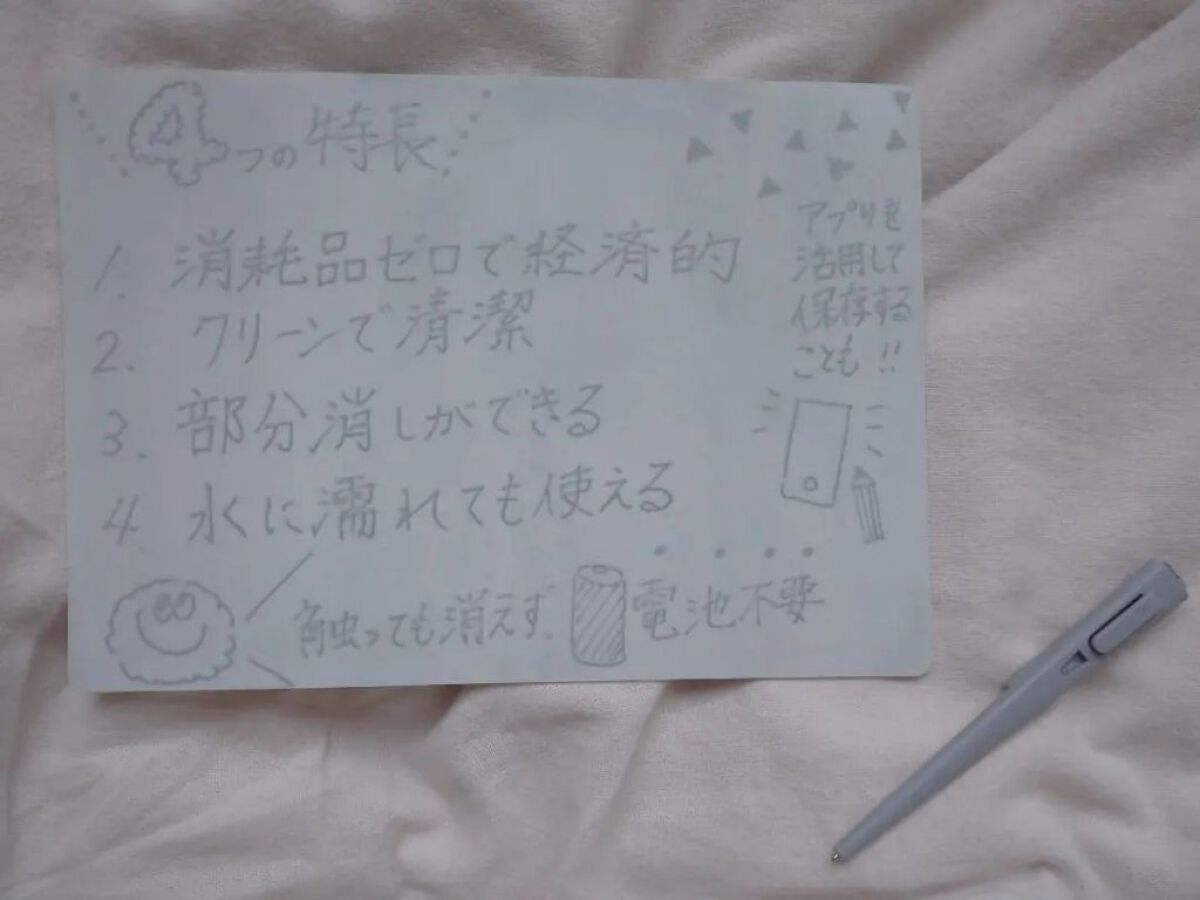 4つの特長
1. 消耗品ゼロで経済的
2. クリーンで清潔
3. 部分消しができる
4. 水に濡れても使える
アプリを
活用して
保存する
ことも!!
触っても消えず 電池不要